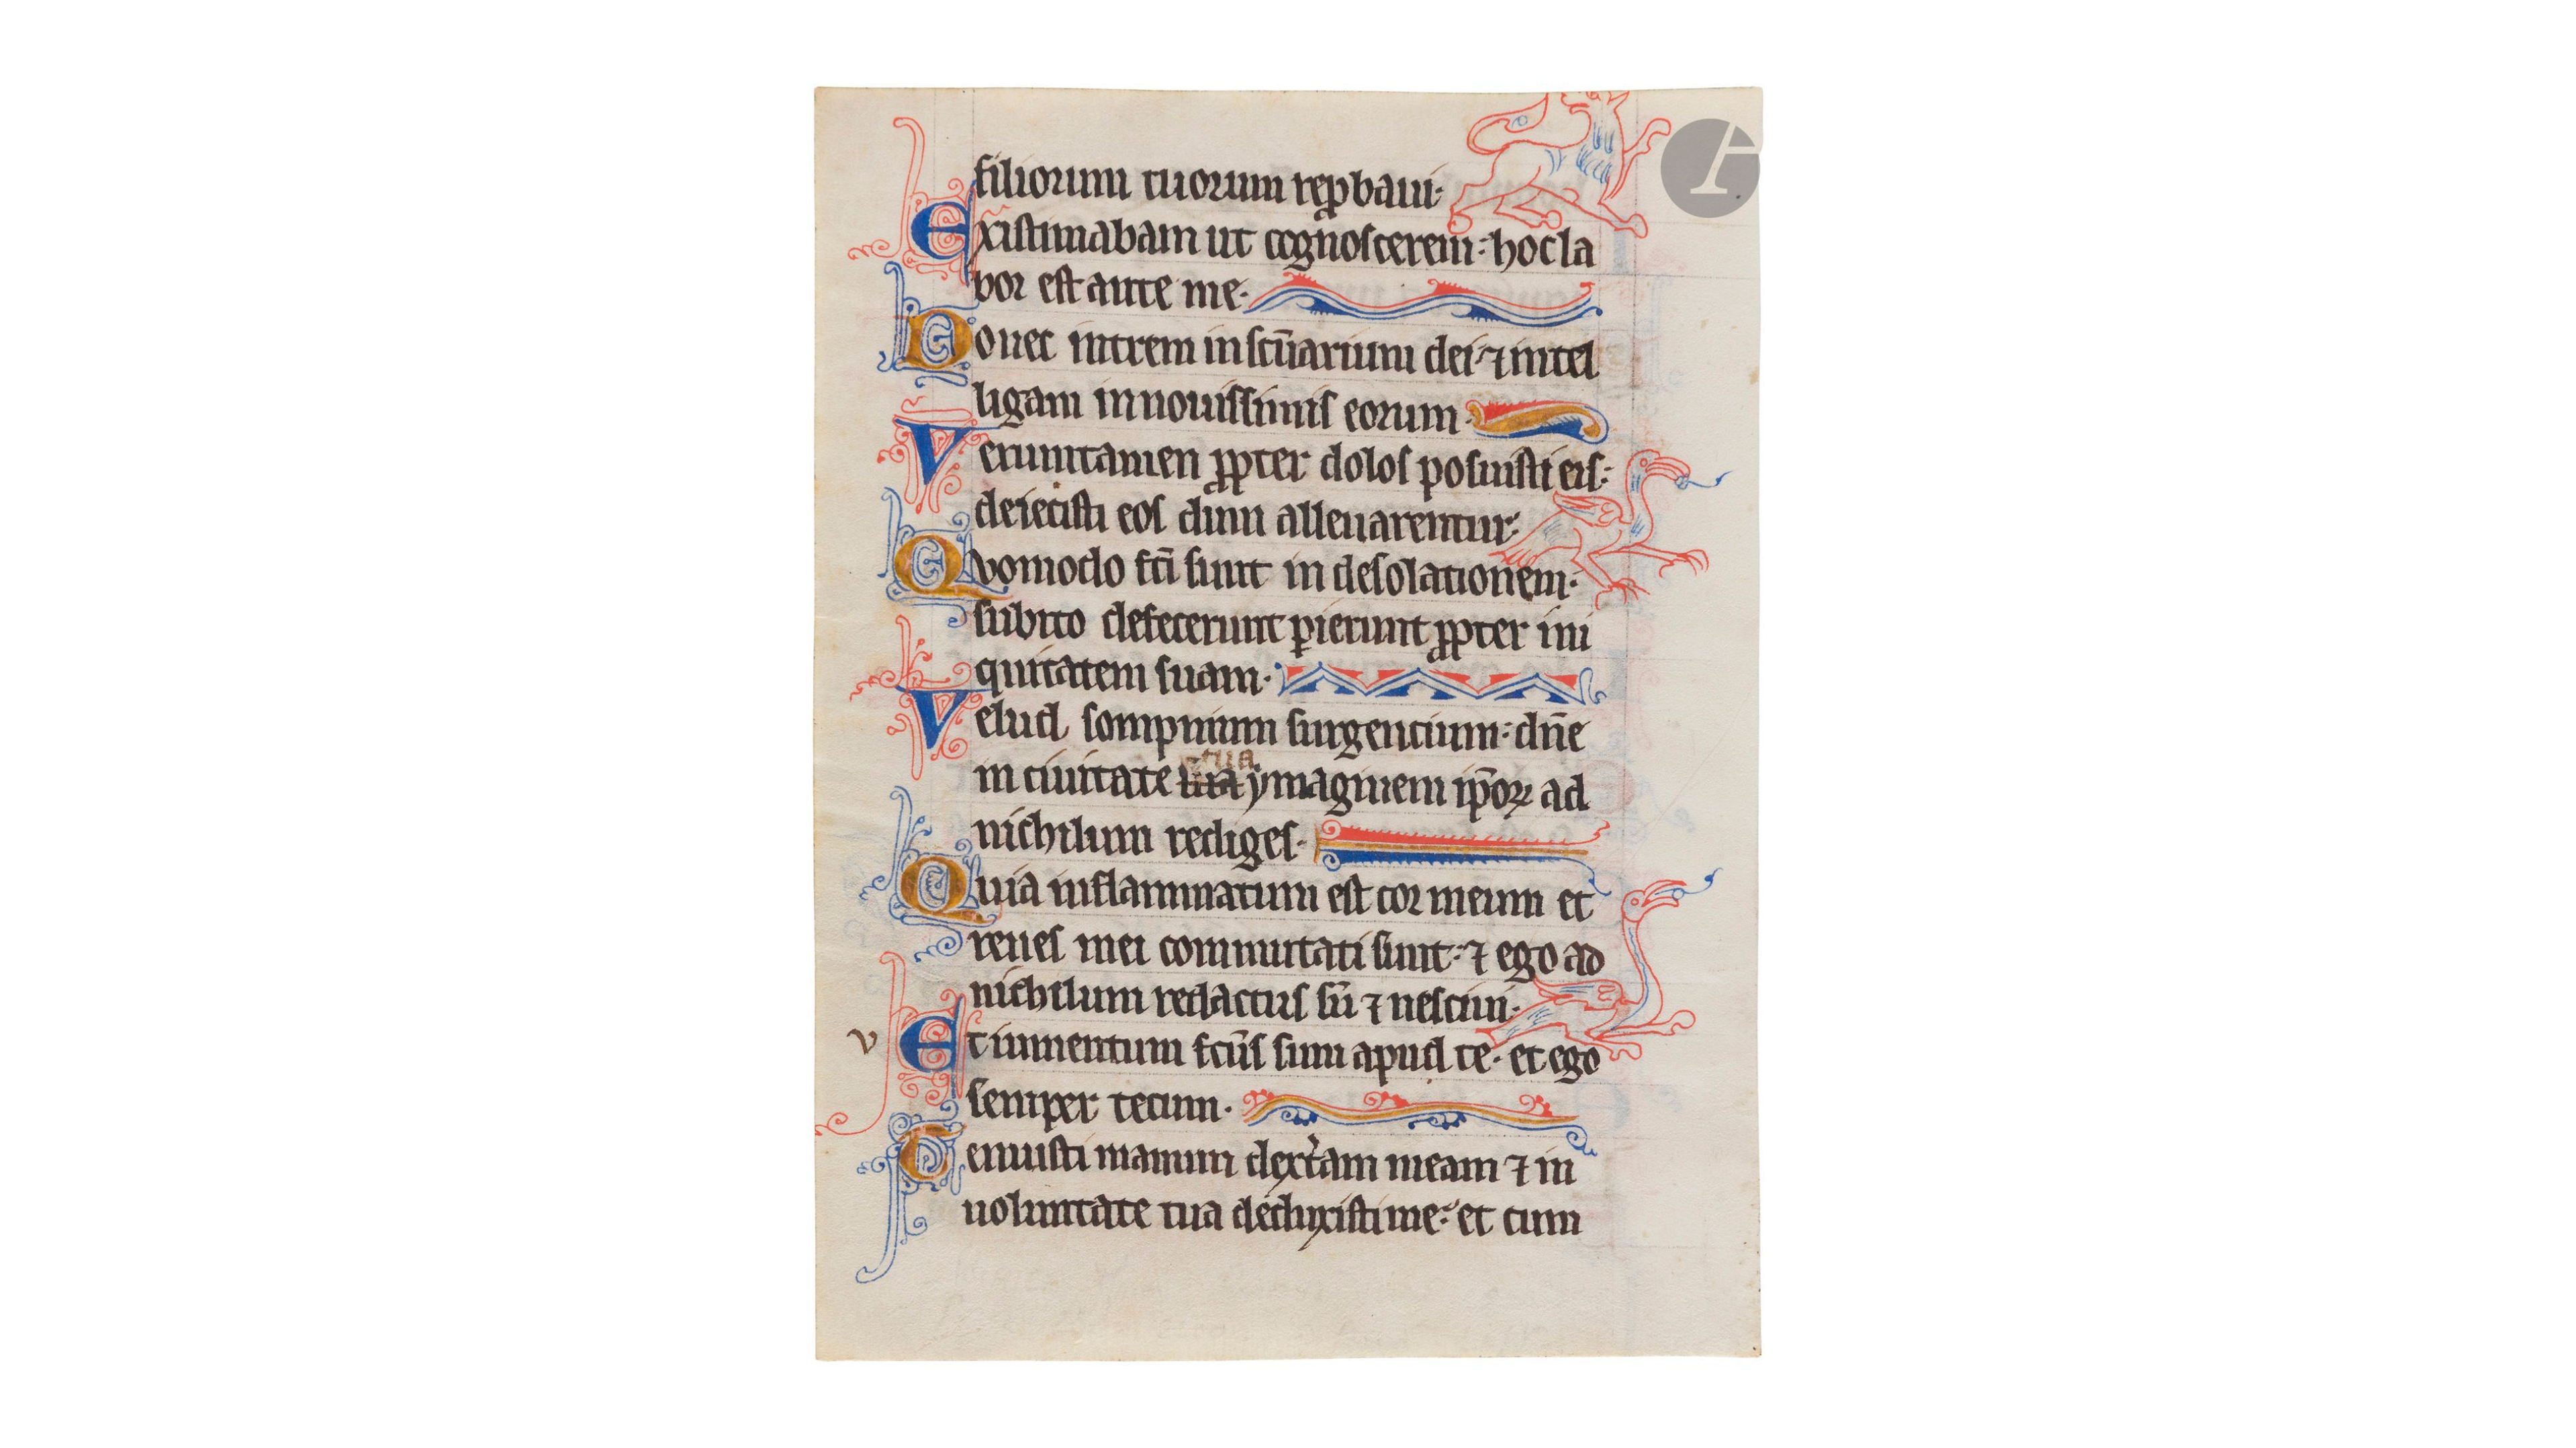 filiorum tuorum rep̱baui·
Existimabam ut cognoscerem: hoc la
bor est ante me·
Donec intrem in scūarium dei· ⁊ intel
ligam in nouissimis eorum·
Verumtamen ꝓpter dolos posuisti eis:
deiecisti eos dum alleuarentur·
Quomodo fc̄i sunt in desolationem·
subito defecerunt ꝑierunt ꝓpter ini
quitatem suam·
Velud sompnium surgencium: dn̄e
in ciuitate tua ymaginem ip̄oꝝ ad
nichilum rediges·
Quia inflammatum est cor meum et
renes mei commutati sunt: ⁊ ego ad
nichilum redactus sū ⁊ nesciui·
v
Et iumentum fcūs sum apud te· et ego
semper tecum·
Tenuisti manum dext̄am meam ⁊ in
uoluntate tua deduxisti me: et cum